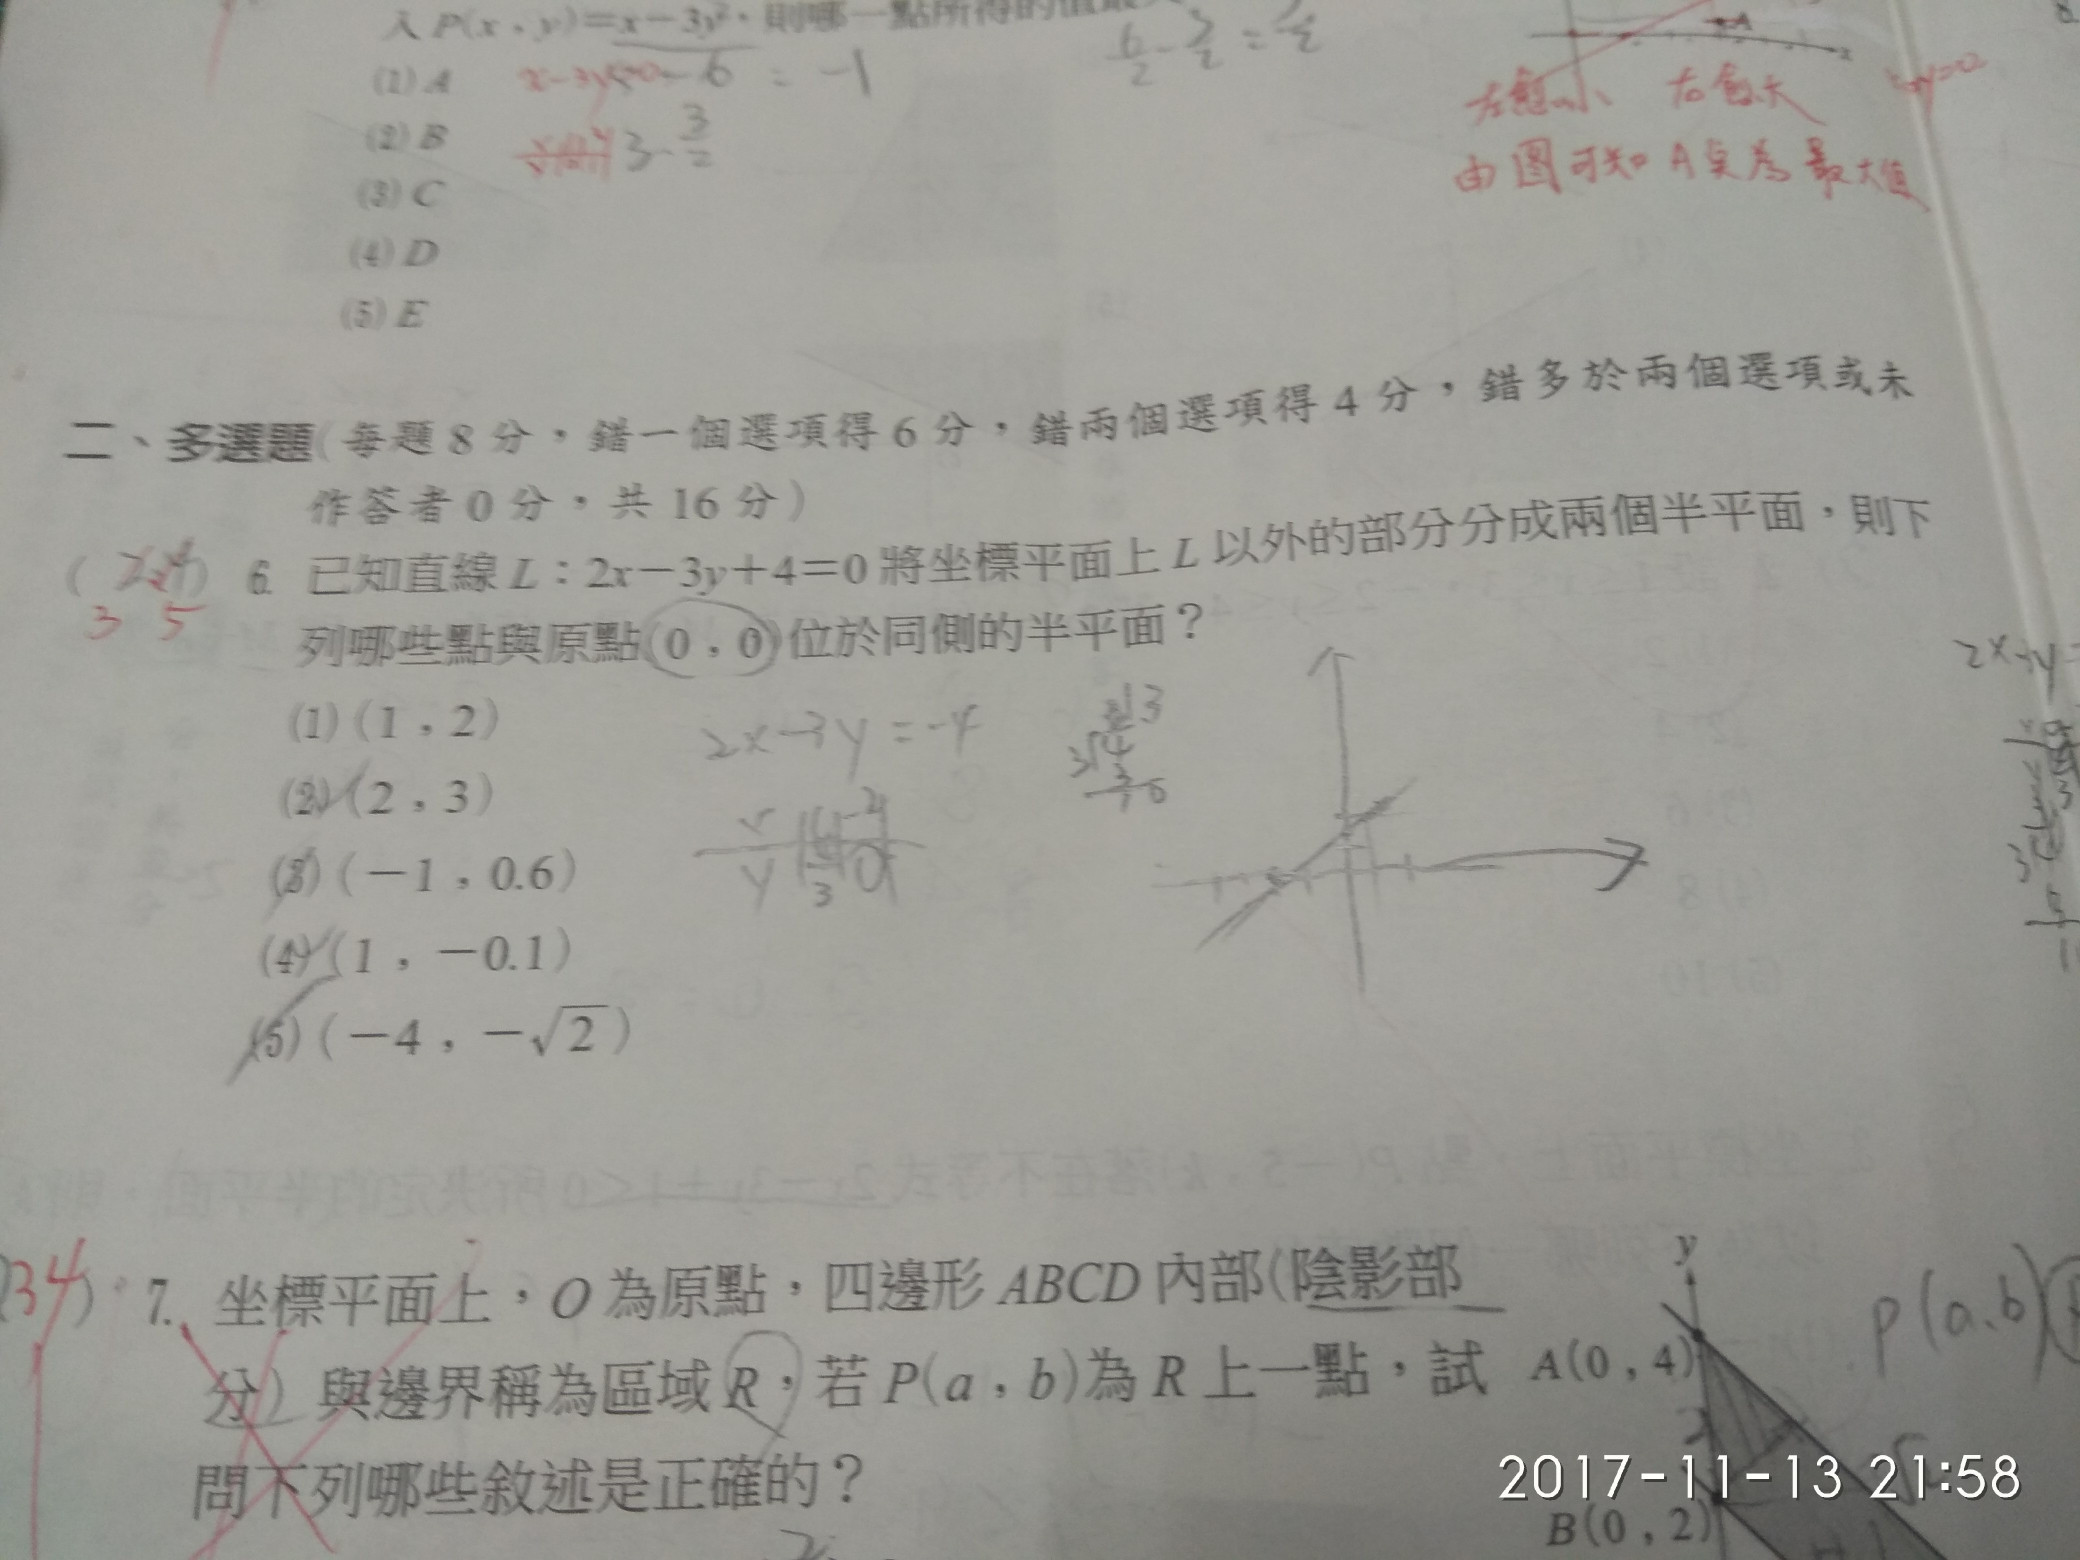 入 P(x,y)=x-3y,則哪一點所得的值最
6/2 - 3/2 = 3/2
(1) A
x-3y=0 -6 = -1
(2) B
3-3/2
(3) C
(4) D
(5) E
A
x
左愈小 右愈大
由圖可知 A 點為最大值
二、多選題(每題 8 分,錯一個選項得 6 分,錯兩個選項得 4 分,錯多於兩個選項或未
作答者 0 分,共 16 分)
( ) 6. 已知直線 L:2x-3y+4=0 將坐標平面上 L 以外的部分分成兩個半平面,則下
3 5
列哪些點與原點(0,0)位於同側的半平面?
(1) (1,2)
2x-3y=-4
(2) (2,3)
(3) (-1,0.6)
(4) (1,-0.1)
(5) (-4,-√2)
2x-3y
34) 7. 坐標平面上,O 為原點,四邊形 ABCD 內部(陰影部
分) 與邊界稱為區域 R,若 P(a,b)為 R 上一點,試
問下列哪些敘述是正確的?
y
P(a,b)
A(0,4)
B(0,2)
2017-11-13 21:58